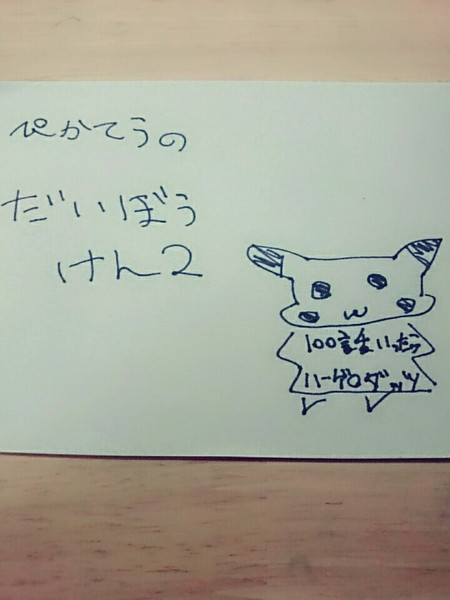 ぴかてうの
だいいぼう
けん2
100話いったら
ハーゲロダッツ